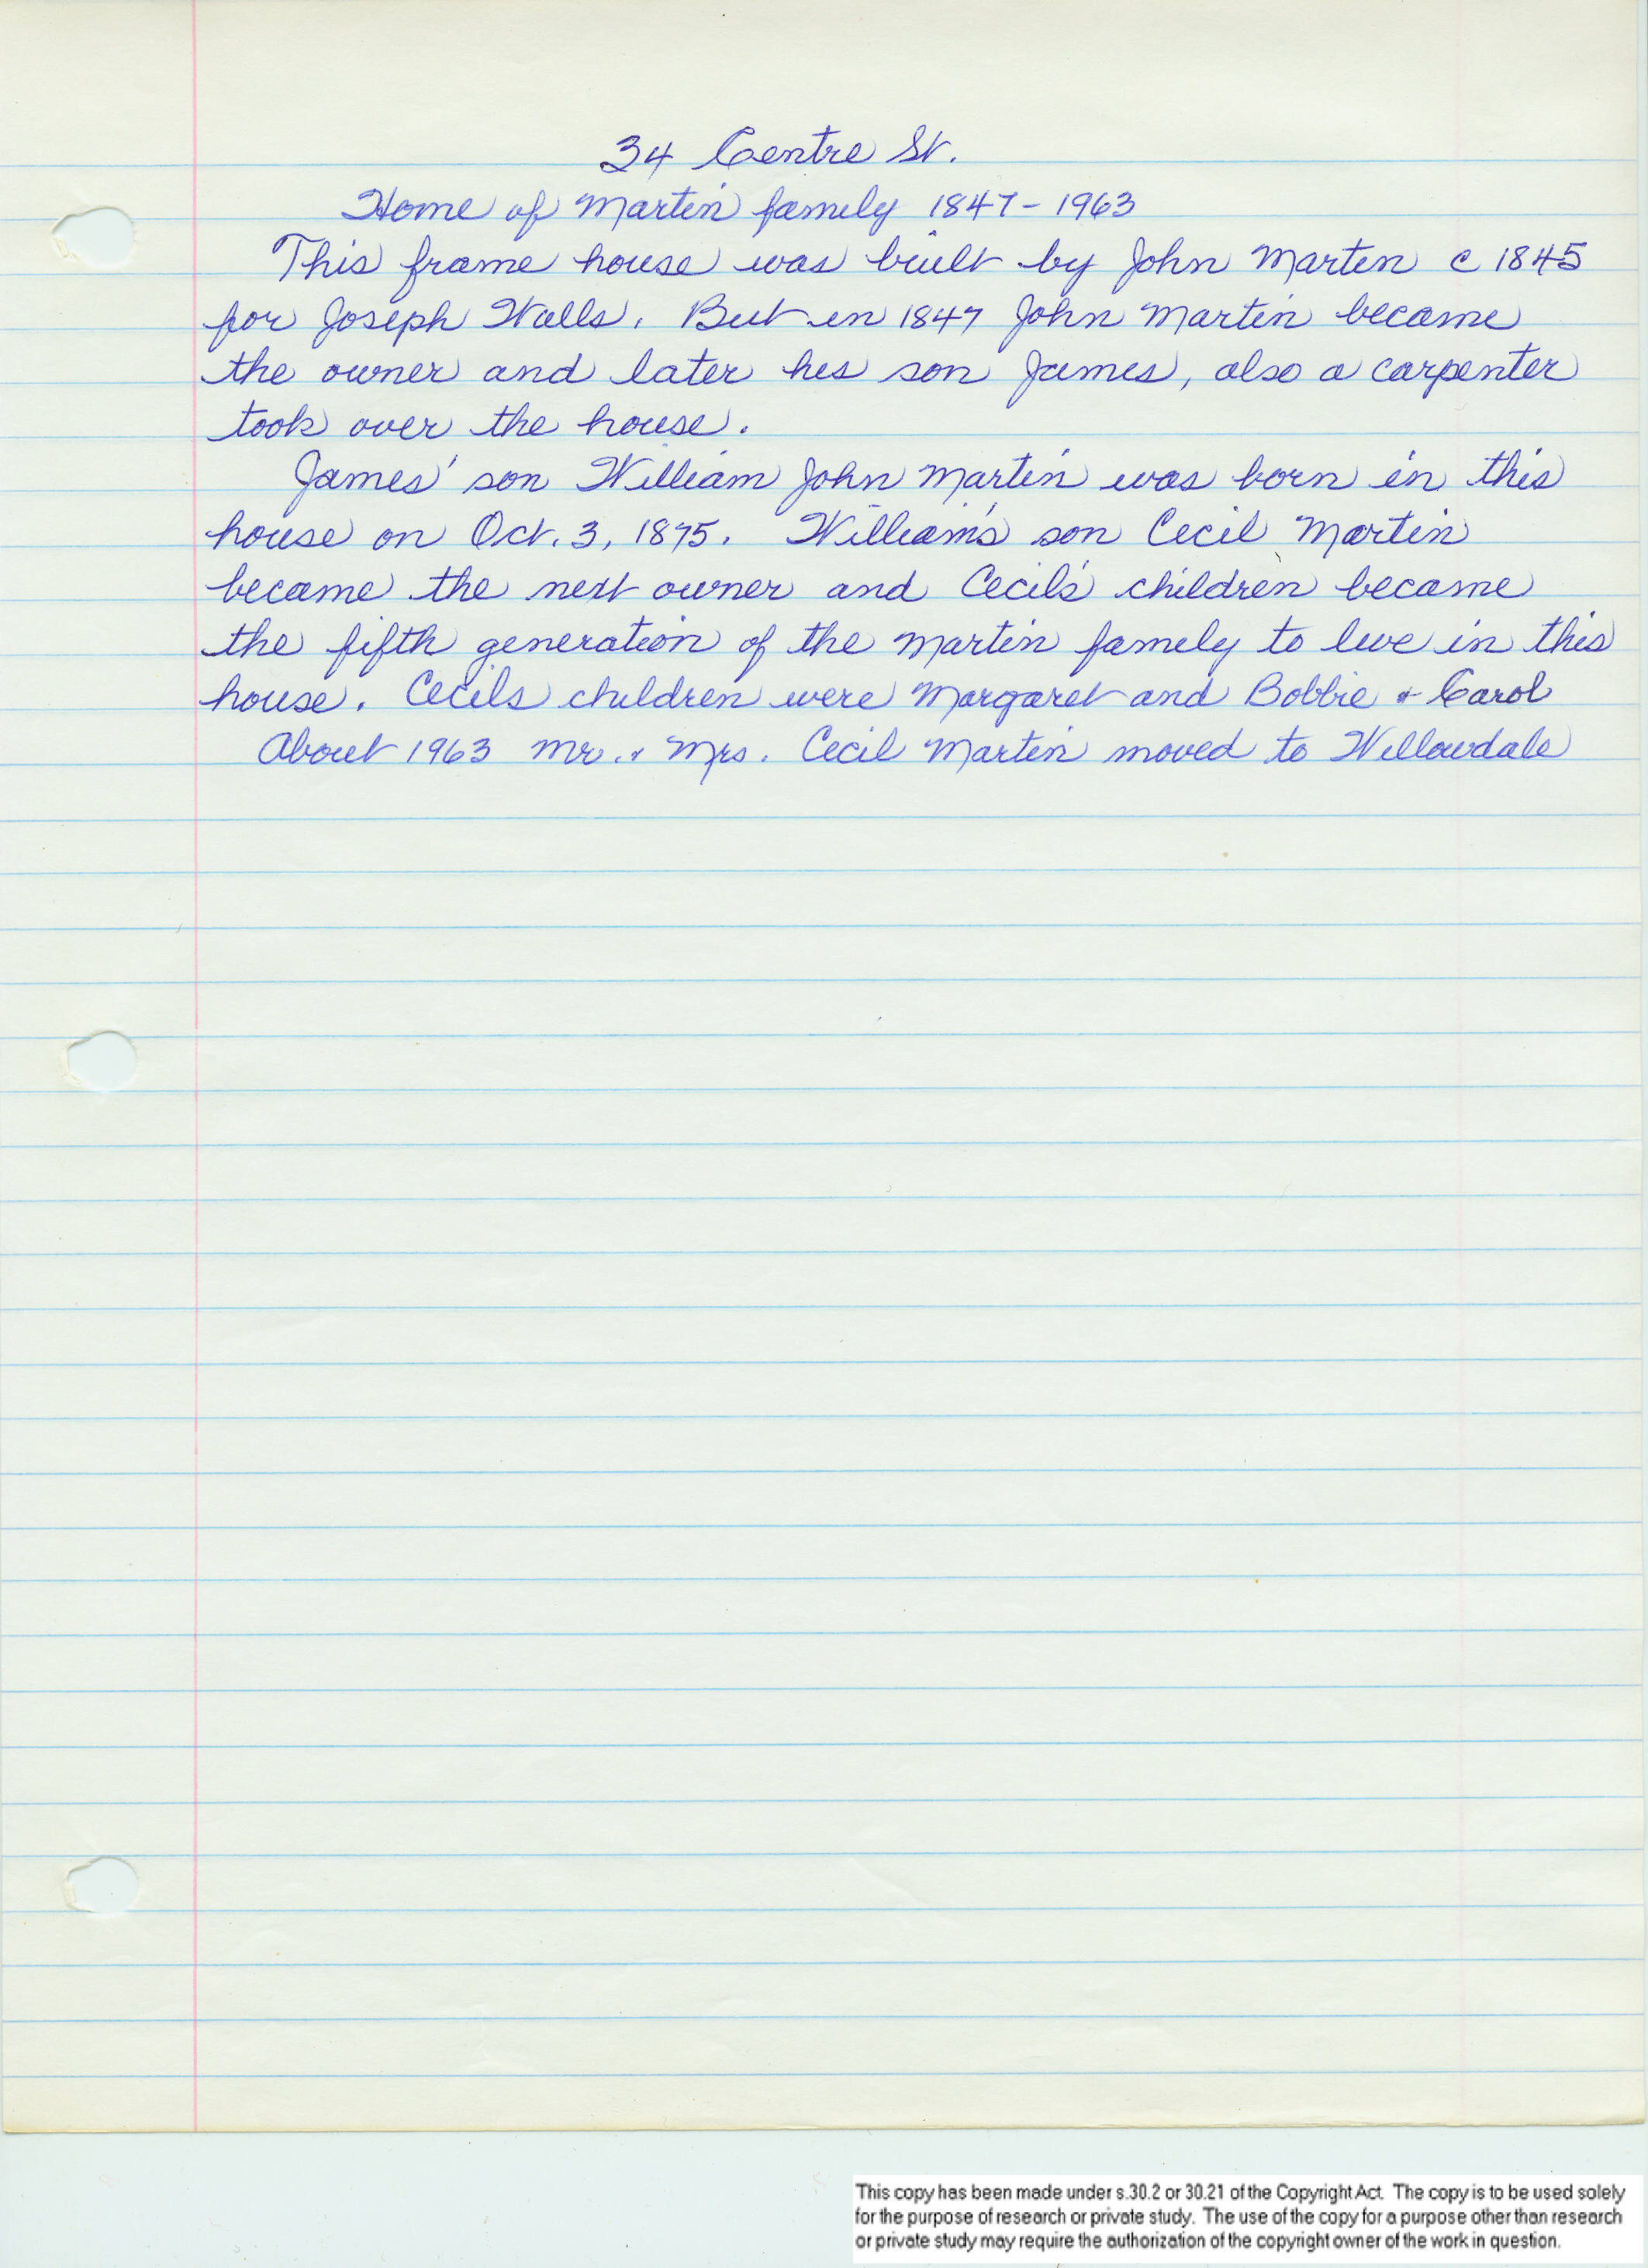 34 Centre St.
Home of Martin family 1847-1963
This frame house was built by John Martin c 1845
for Joseph Walls. But in 1847 John Martin became
the owner and later his son James, also a carpenter
took over the house.
James' son William John Martin was born in this
house on Oct. 3, 1875. William's son Cecil Martin
became the next owner and Cecil's children became
the fifth generation of the Martin family to live in this
house. Cecils children were Margaret and Bobbie & Carol
About 1963 Mr. & Mrs. Cecil Martin moved to Willowdale
This copy has been made under s.30.2 or 30.21 of the Copyright Act. The copy is to be used solely
for the purpose of research or private study. The use of the copy for a purpose other than research
or private study may require the authorization of the copyright owner of the work in question.